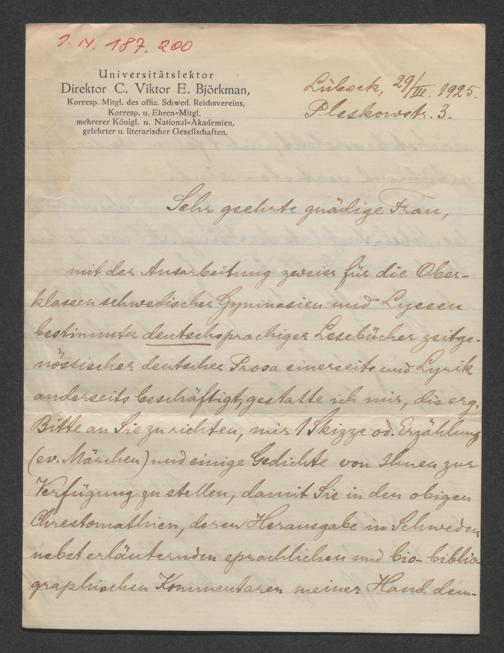 I. N. 187.200
Universitätslektor
Direktor C. Viktor E. Björkman,
Korresp. Mitgl. des offiz. Schwed. Reichsvereins,
Korresp. u. Ehren-Mitgl.
mehrerer Königl. u. National-Akademien,
gelehrter u. literarischer Gesellschaften.
Lübeck, 29/III. 1925.
Pleskowstr. 3.
Sehr geehrte gnädige Frau,
mit der Ausarbeitung zweier für die Ober-
klassen schwedischer Gymnasien und Lyceen
bestimmter deutschsprachiger Lesebücher zeitge-
nössischer deutscher Prosa einerseits und Lyrik
anderseits beschäftigt, gestatte ich mir, die erg.
Bitte an Sie zu richten, mir 1 Skizze od. Erzählung
(ev. Märchen) und einige Gedichte von Ihnen zur
Verfügung zu stellen, damit Sie in den obigen
Chrestomathien, deren Herausgabe in Schweden
nebst erläuternden sprachlichen und bio-biblio-
graphischen Kommentaren meiner Hand dem-